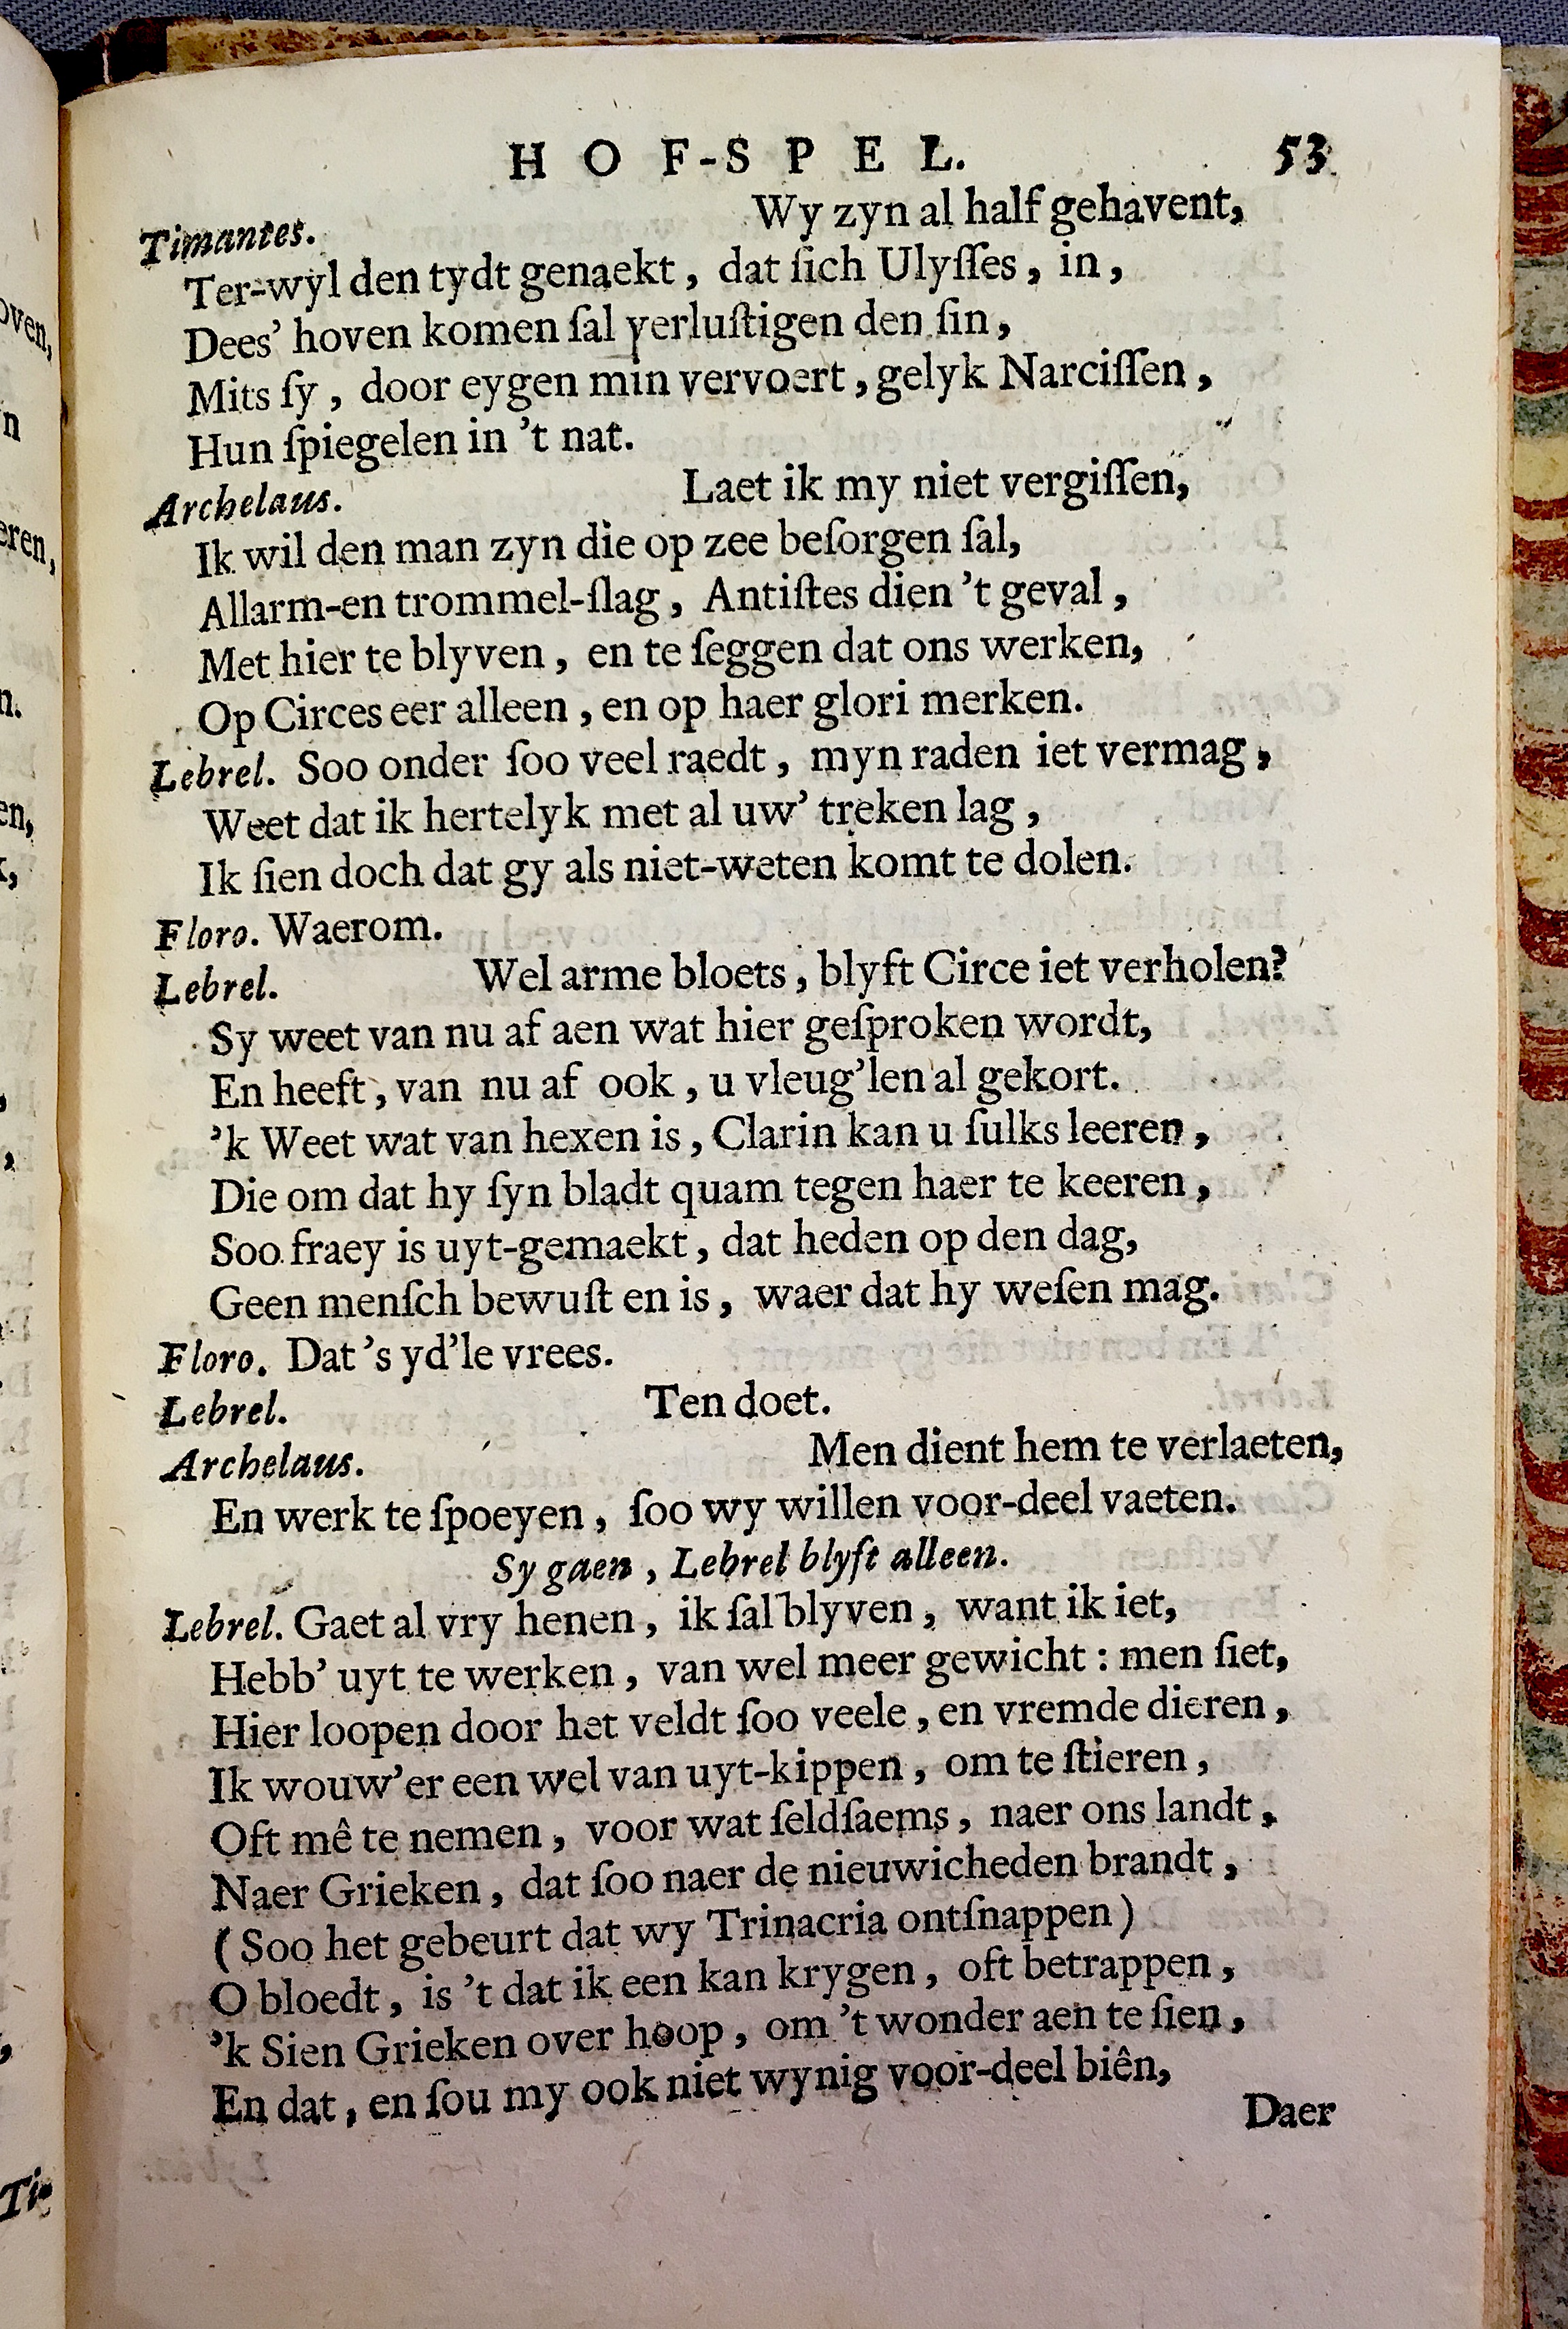 HOF-SPEL. 53
Wy zyn al half gehavent,
Timantes.
Ter-wyl den tydt genaekt, dat ſich Ulyſſes, in,
Dees' hoven komen ſal verluſtigen den ſin,
Mits ſy, door eygen min vervoert, gelyk Narciſſen,
Hun ſpiegelen in 't nat.
Archelaus. Laet ik my niet vergiſſen,
Ik wil den man zyn die op zee beſorgen ſal,
Allarm-en trommel-ſlag, Antiſtes dien 't geval,
Met hier te blyven, en te ſeggen dat ons werken,
Op Circes eer alleen, en op haer glori merken.
Lebrel. Soo onder ſoo veel raedt, myn raden iet vermag,
Weet dat ik hertelyk met al uw' treken lag,
Ik ſien doch dat gy als niet-weten komt te dolen.
Floro. Waerom.
Lebrel. Wel arme bloets, blyft Circe iet verholen?
Sy weet van nu af aen wat hier geſproken wordt,
En heeft, van nu af ook, u vleug'len al gekort.
'k Weet wat van hexen is, Clarin kan u ſulks leeren,
Die om dat hy ſyn bladt quam tegen haer te keeren,
Soo fraey is uyt-gemaekt, dat heden op den dag,
Geen menſch bewuſt en is, waer dat hy weſen mag.
Floro. Dat 's yd'le vrees.
Lebrel. Ten doet.
Archelaus. Men dient hem te verlaeten,
En werk te ſpoeyen, ſoo wy willen voor-deel vaeten.
Sy gaen, Lebrel blyft alleen.
Lebrel. Gaet al vry henen, ik ſal blyven, want ik iet,
Hebb' uyt te werken, van wel meer gewicht: men ſiet,
Hier loopen door het veldt ſoo veele, en vremde dieren,
Ik wouw'er een wel van uyt-kippen, om te ſtieren,
Oft mê te nemen, voor wat ſeldſaems, naer ons landt,
Naer Grieken, dat ſoo naer de nieuwicheden brandt,
(Soo het gebeurt dat wy Trinacria ontſnappen)
O bloedt, is 't dat ik een kan krygen, oft betrappen,
'k Sien Grieken over hoop, om 't wonder aen te ſien,
En dat, en ſou my ook niet wynig voor-deel biên,
Daer